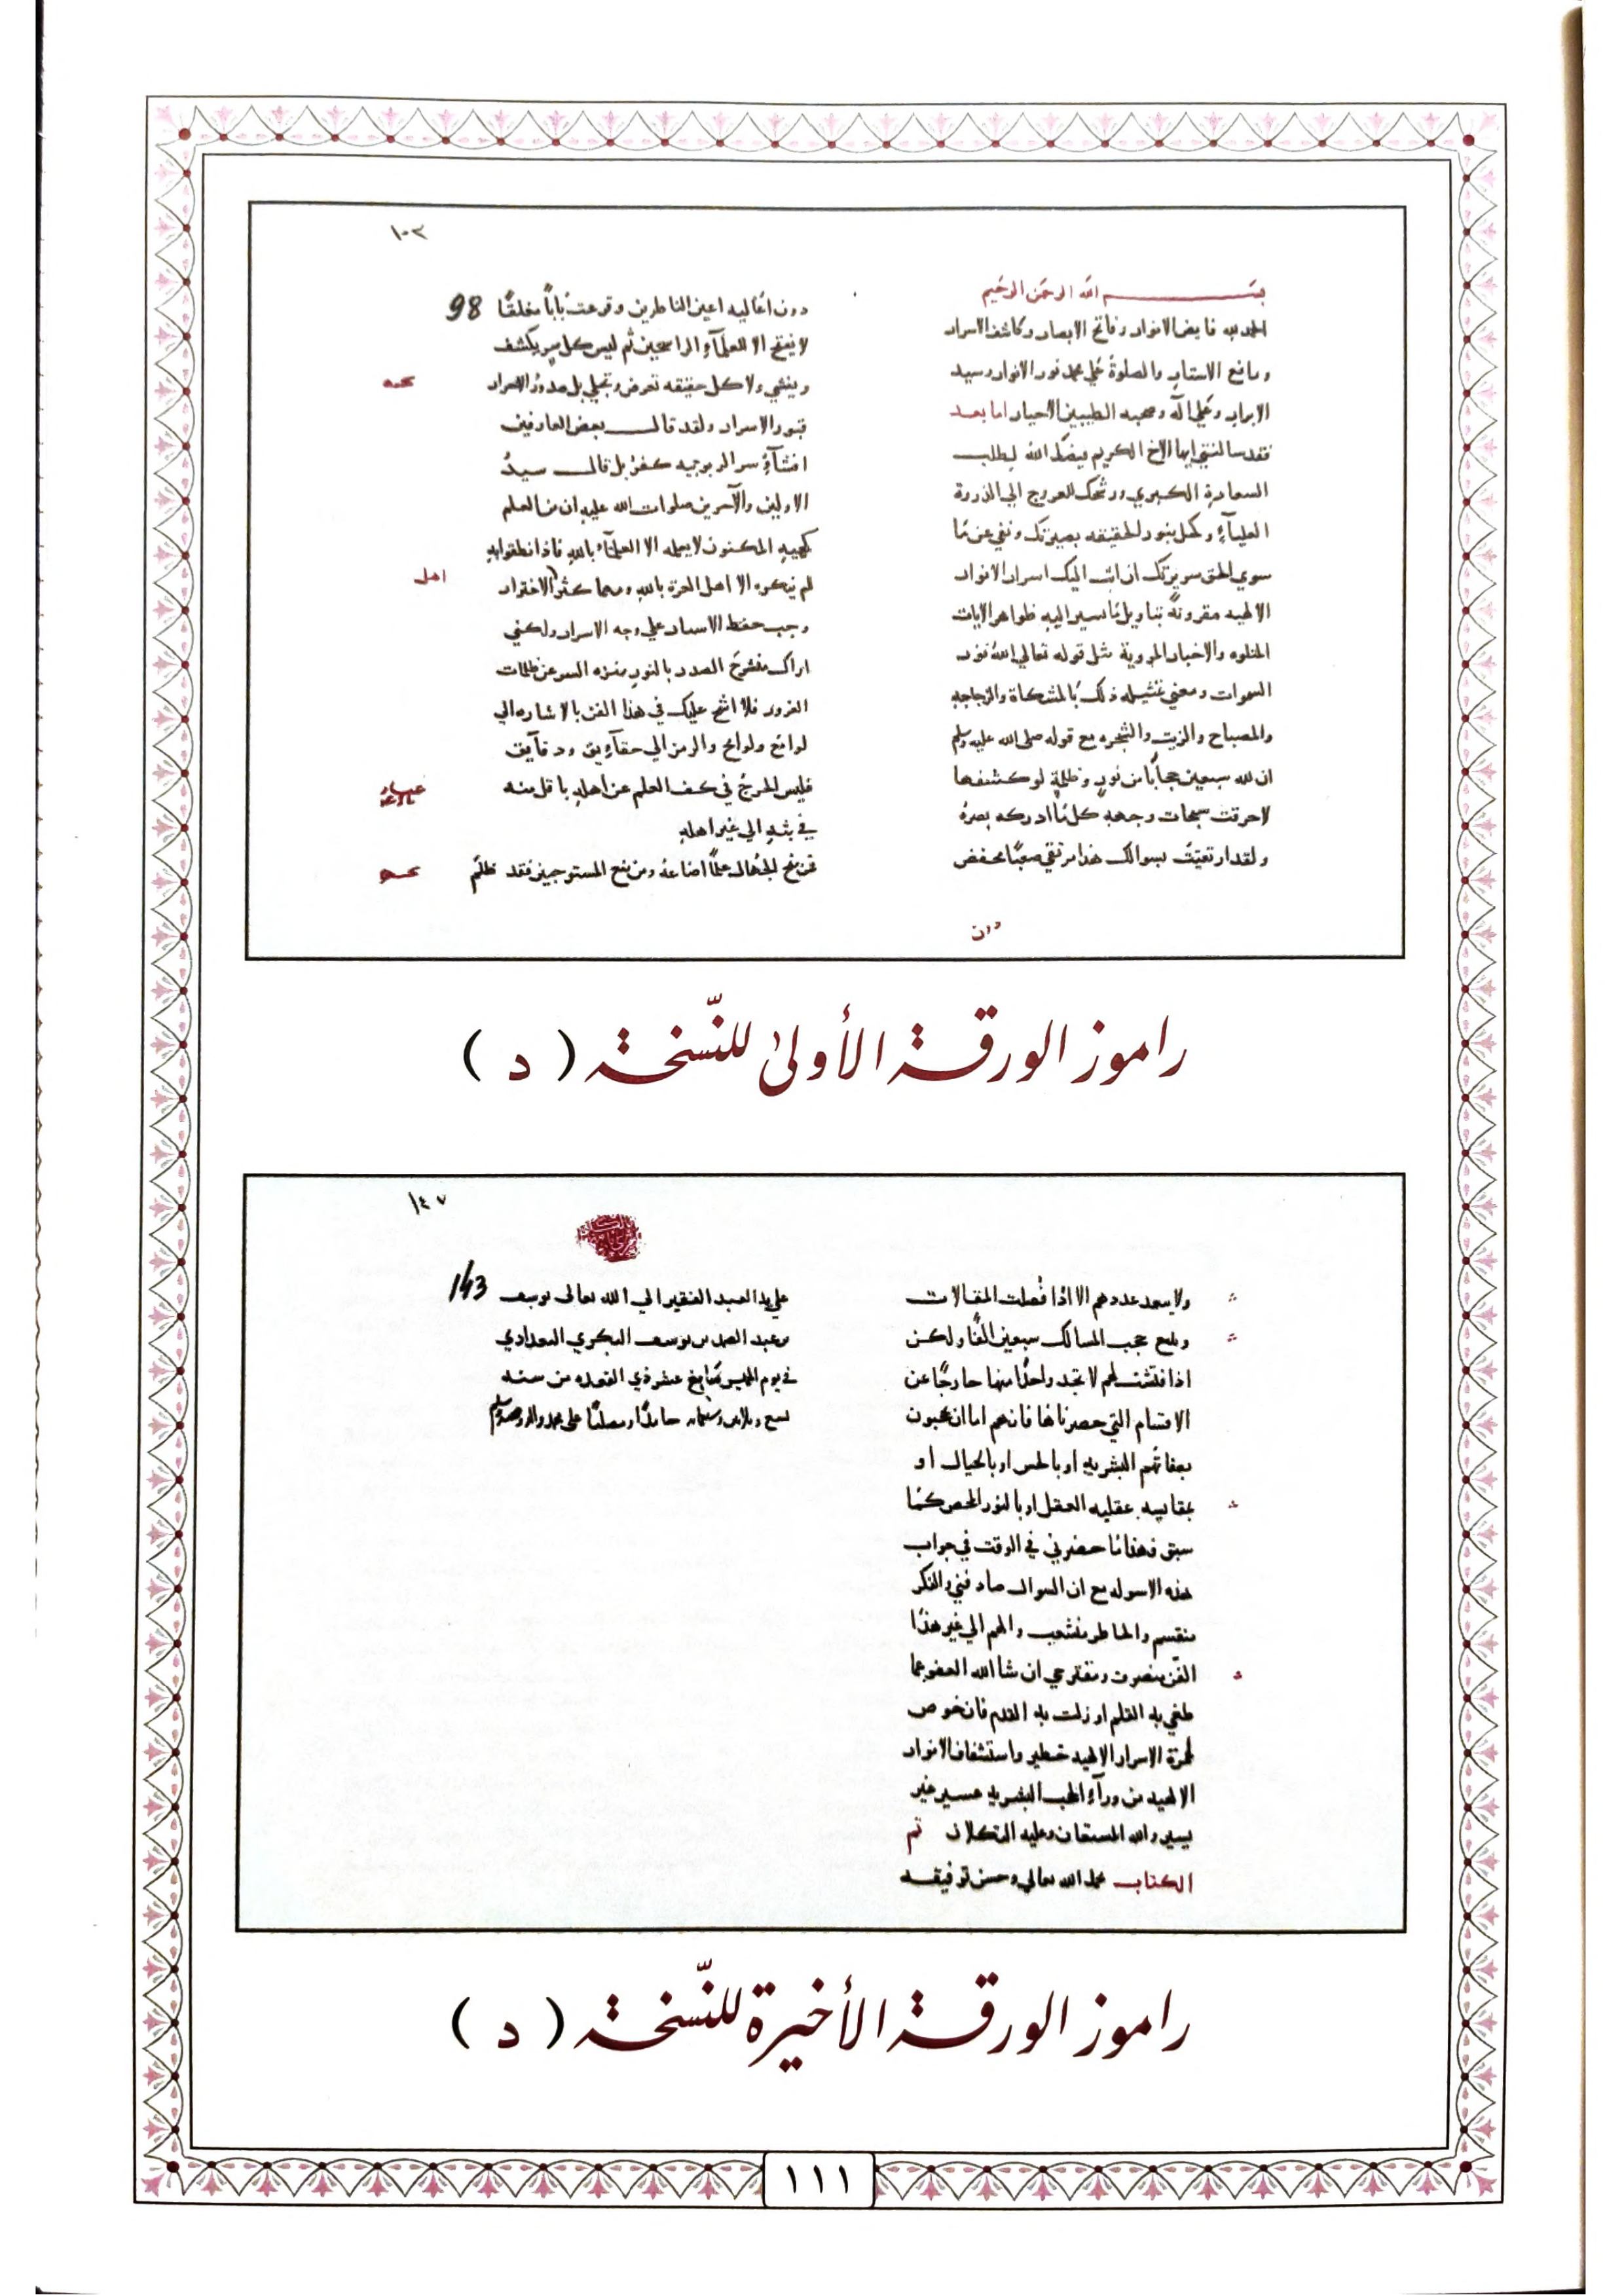 ١٠٣
بسم الله الرحمن الرحيم
الحمد لله فايض الانوار وفاتح الابصار وكاشف الاسرار
ورافع الاستار والصلوة على محمد نور الانوار وسيد
الابرار وعلى اله وصحبه الطيبين الاخيار اما بعد
فقد سالتني ايها الاخ الكريم قيضك الله لطلب
السعادة الكبري ورشحك للعروج الي الذروة
العليآء وكحل بنور الحقيقه بصيرتك ونقي عن مّا
سوي الحق سريرتك ان ابث اليك اسرار الانوار
الالهيه مقرونة بتاويل ما يسير اليه ظواهر الايات
المتلوه والاخبار المروية مثل قوله تعالي الله نور
السموات ومعني تمثيله ذلك بالمشكاة والزجاجه
والمصباح والزيت والشجره مع قوله صلى الله عليه وسلم
ان لله سبعين حجابًا من نور وظلمة لو كشفها
لاحرقت سبحات وجهه كل مّا ادركه بصره
ولقد ارتقيت بسوالك هذا مرتقي صعبًا تنخفض
دون
98
دون اعاليه اعين الناظرين وقرعت بابًا مغلقًا
لا يفتح الا للعلمآء الراسخين ثم ليس كل سر يكشف
ويفشي ولا كل حقيقه تعرض وتجلي بل صدور الاحرار
قبور الاسرار ولقد قال بعض العارفين
افشآء سر الربوبيه كفر بل قال سيد
الاولين والآخرين صلوات الله عليه ان من العلم
كهيئة المكنون لا يعلمه الا العلمآء بالله فاذا نطقوا به
لم ينكره الا اهل الغرة بالله ومهما كثر الاغترار
اهل
وجب حفظ الاسرار علي وجه الاسرار ولكني
اراك منشرح الصدر بالنور منزه السر عن ظلمات
الغرور فلا اشح عليك في هذا الفن بالاشاره الي
لوامع ولوايح والرمز الي حقآيق ودقآيق
فليس الخرج في كف العلم عن اهله باقل منه
في بثه الي غير اهله
فمن منح الجهال علمًا اضاعه ومن منع المستوجبين فقد ظلم
راموز الورقة الأولى للنّسخة ( د )
١٤٧
ولا يبعد عددهم الا اذا فصلت المقالات
وبلغ حجب المسالك سبعين الفًا ولكن
اذا فتشت لهم لا تجد واحدًا منها خارجًا عن
الاقسام التي حصرناها فانهم اما ان يحجبون
بصفاتهم البشريه او بالحس او بالخيال او
بمقايسه عقليه العقل او بالنور المحض كمّا
سبق فهذا مّا حضرني في الوقت في جواب
هذه الاسوله مع ان السوال صادفني والفكر
منقسم والخاطر منشعب والهم الي غير هذا
الفن منصرف ومقترحي ان شا الله العفو عما
طغي به القلم او زلت به القدم فان خوض
غمرة الاسرار الالهيه خطير واستشفاف الانوار
الالهيه من ورآء الحجب البشريه عسير غير
يسير والله المستعان وعليه التكلان تم
الكتاب بحمد الله تعالي وحسن توفيقه
143
علي يد العبد الفقير الي الله تعالى يوسف
بن عبد الصمد بن يوسف البكري البغدادي
في يوم الخميس عشر ذي القعده من سنه
حامدًا ومصليًا على محمد واله وصحبه وسلم
راموز الورقة الأخيرة للنّسخة ( د )
١١١